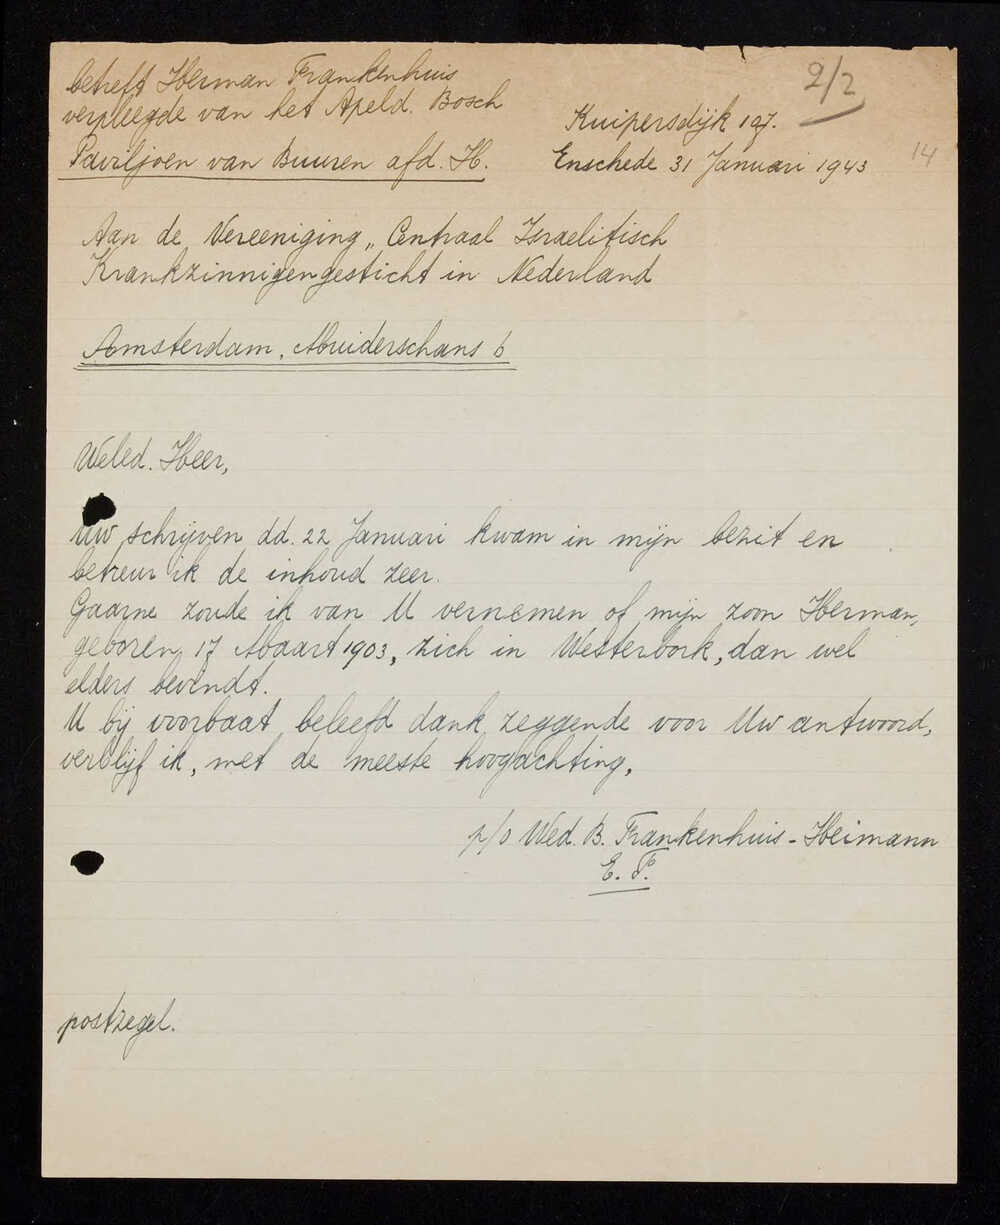 betreft Herman Frankenhuis
verpleegde van het Apeld. Bosch
Paviljoen van Buuren afd. H.
2/2
Kuipersdijk 197.
14
Enschede 31 Januari 1943
Aan de Vereeniging „Centraal Israelitisch
Krankzinnigengesticht in Nederland
Amsterdam, Muiderschans 6
Weled. Heer,
Uw schrijven dd. 22 Januari kwam in mijn bezit en
betreur ik de inhoud zeer.
Gaarne zoude ik van U vernemen of mijn zoon Herman,
geboren 17 Maart 1903, zich in Westerbork, dan wel
elders bevindt.
U bij voorbaat beleefd dank zeggende voor Uw antwoord,
verblijf ik, met de meeste hoogachting,
p/o Wed. B. Frankenhuis-Heimann
E. F.
postzegel.